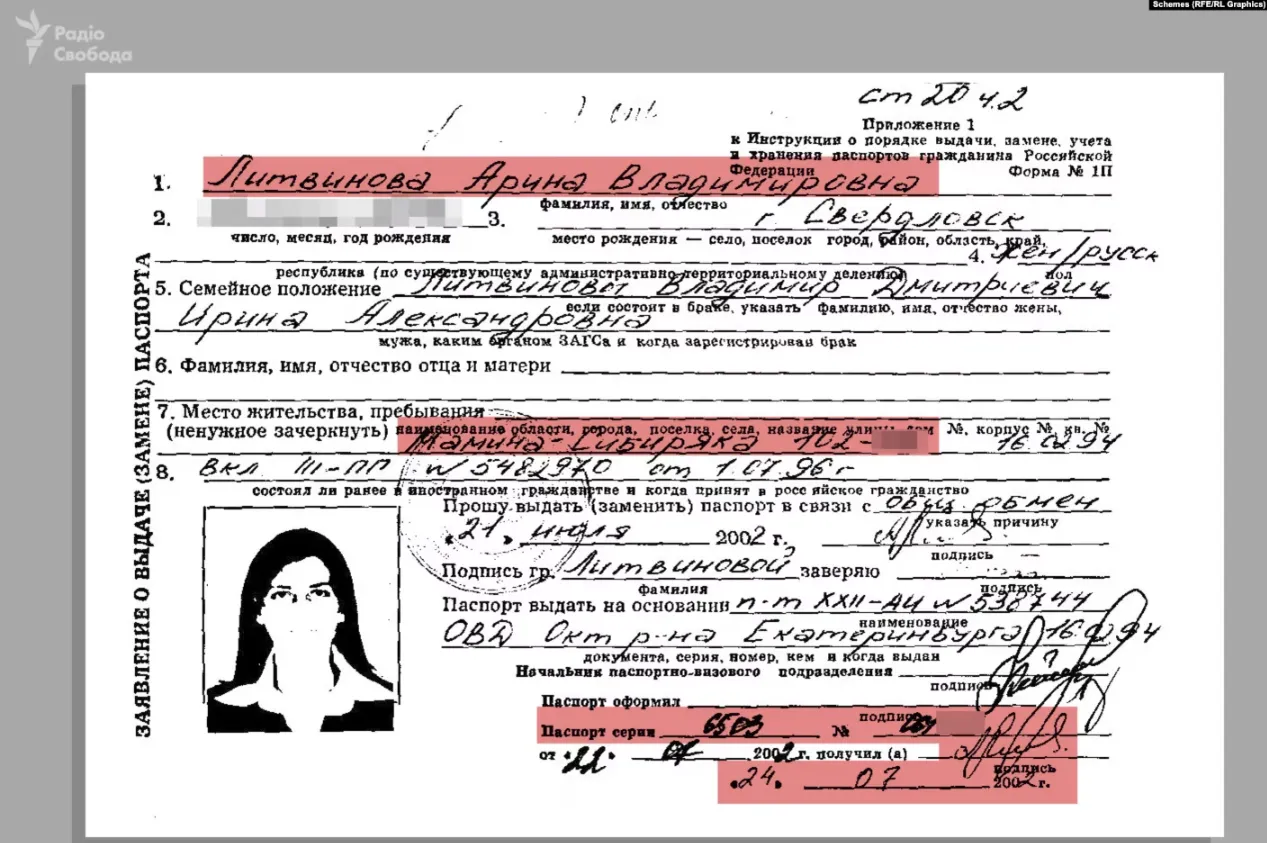 Schemes (RFE/RL Graphics)
Радіо
Свобода
ст 20 ч.2
Приложение 1
к Инструкции о порядке выдачи, замене, учета
и хранения паспортов гражданина Российской
Федерации Форма № 1П
1. Литвинова Арина Владимировна
фамилия, имя, отчество
2. 3. г. Свердловск
число, месяц, год рождения место рождения — село, поселок город, район, область, край,
4. жен/русск
республика (по существующему административно-территориальному делению) пол
5. Семейное положение Литвиновы Владимир Дмитриевич
если состоит в браке, указать фамилию, имя, отчество жены,
Ирина Александровна
мужа, каким органом ЗАГСа и когда зарегистрирован брак
6. Фамилия, имя, отчество отца и матери
7. Место жительства, пребывания
(ненужное зачеркнуть) наименование области, города, поселка, села, название улицы, дом №, корпус №, кв. №
Мамина-Сибиряка 102- 16.02.94
8. Вкл III-ПП № 5482970 от 1.07.96 г
состоял ли ранее в иностранном гражданстве и когда принят в российское гражданство
Прошу выдать (заменить) паспорт в связи с общ. обмен
указать причину
«21» июля 2002 г.
подпись
Подпись гр. Литвиновой заверяю
фамилия подпись
Паспорт выдать на основании п-т XXII-АИ № 538744
наименование
ОВД Окт р-на Екатеринбурга 16.02.94
документа, серия, номер, кем и когда выдан
Начальник паспортно-визового подразделения
подпись
Паспорт оформил
подпись
Паспорт серии 6503 №
от «22» 07 2002 г. получил (а)
подпись
«24» 07 2002 г.
ЗАЯВЛЕНИЕ О ВЫДАЧЕ (ЗАМЕНЕ) ПАСПОРТА